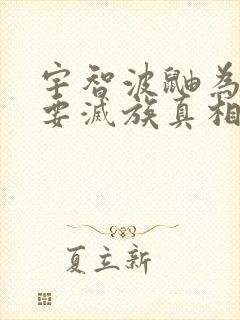 宇智波鼬為
要滅族真相
夏立新